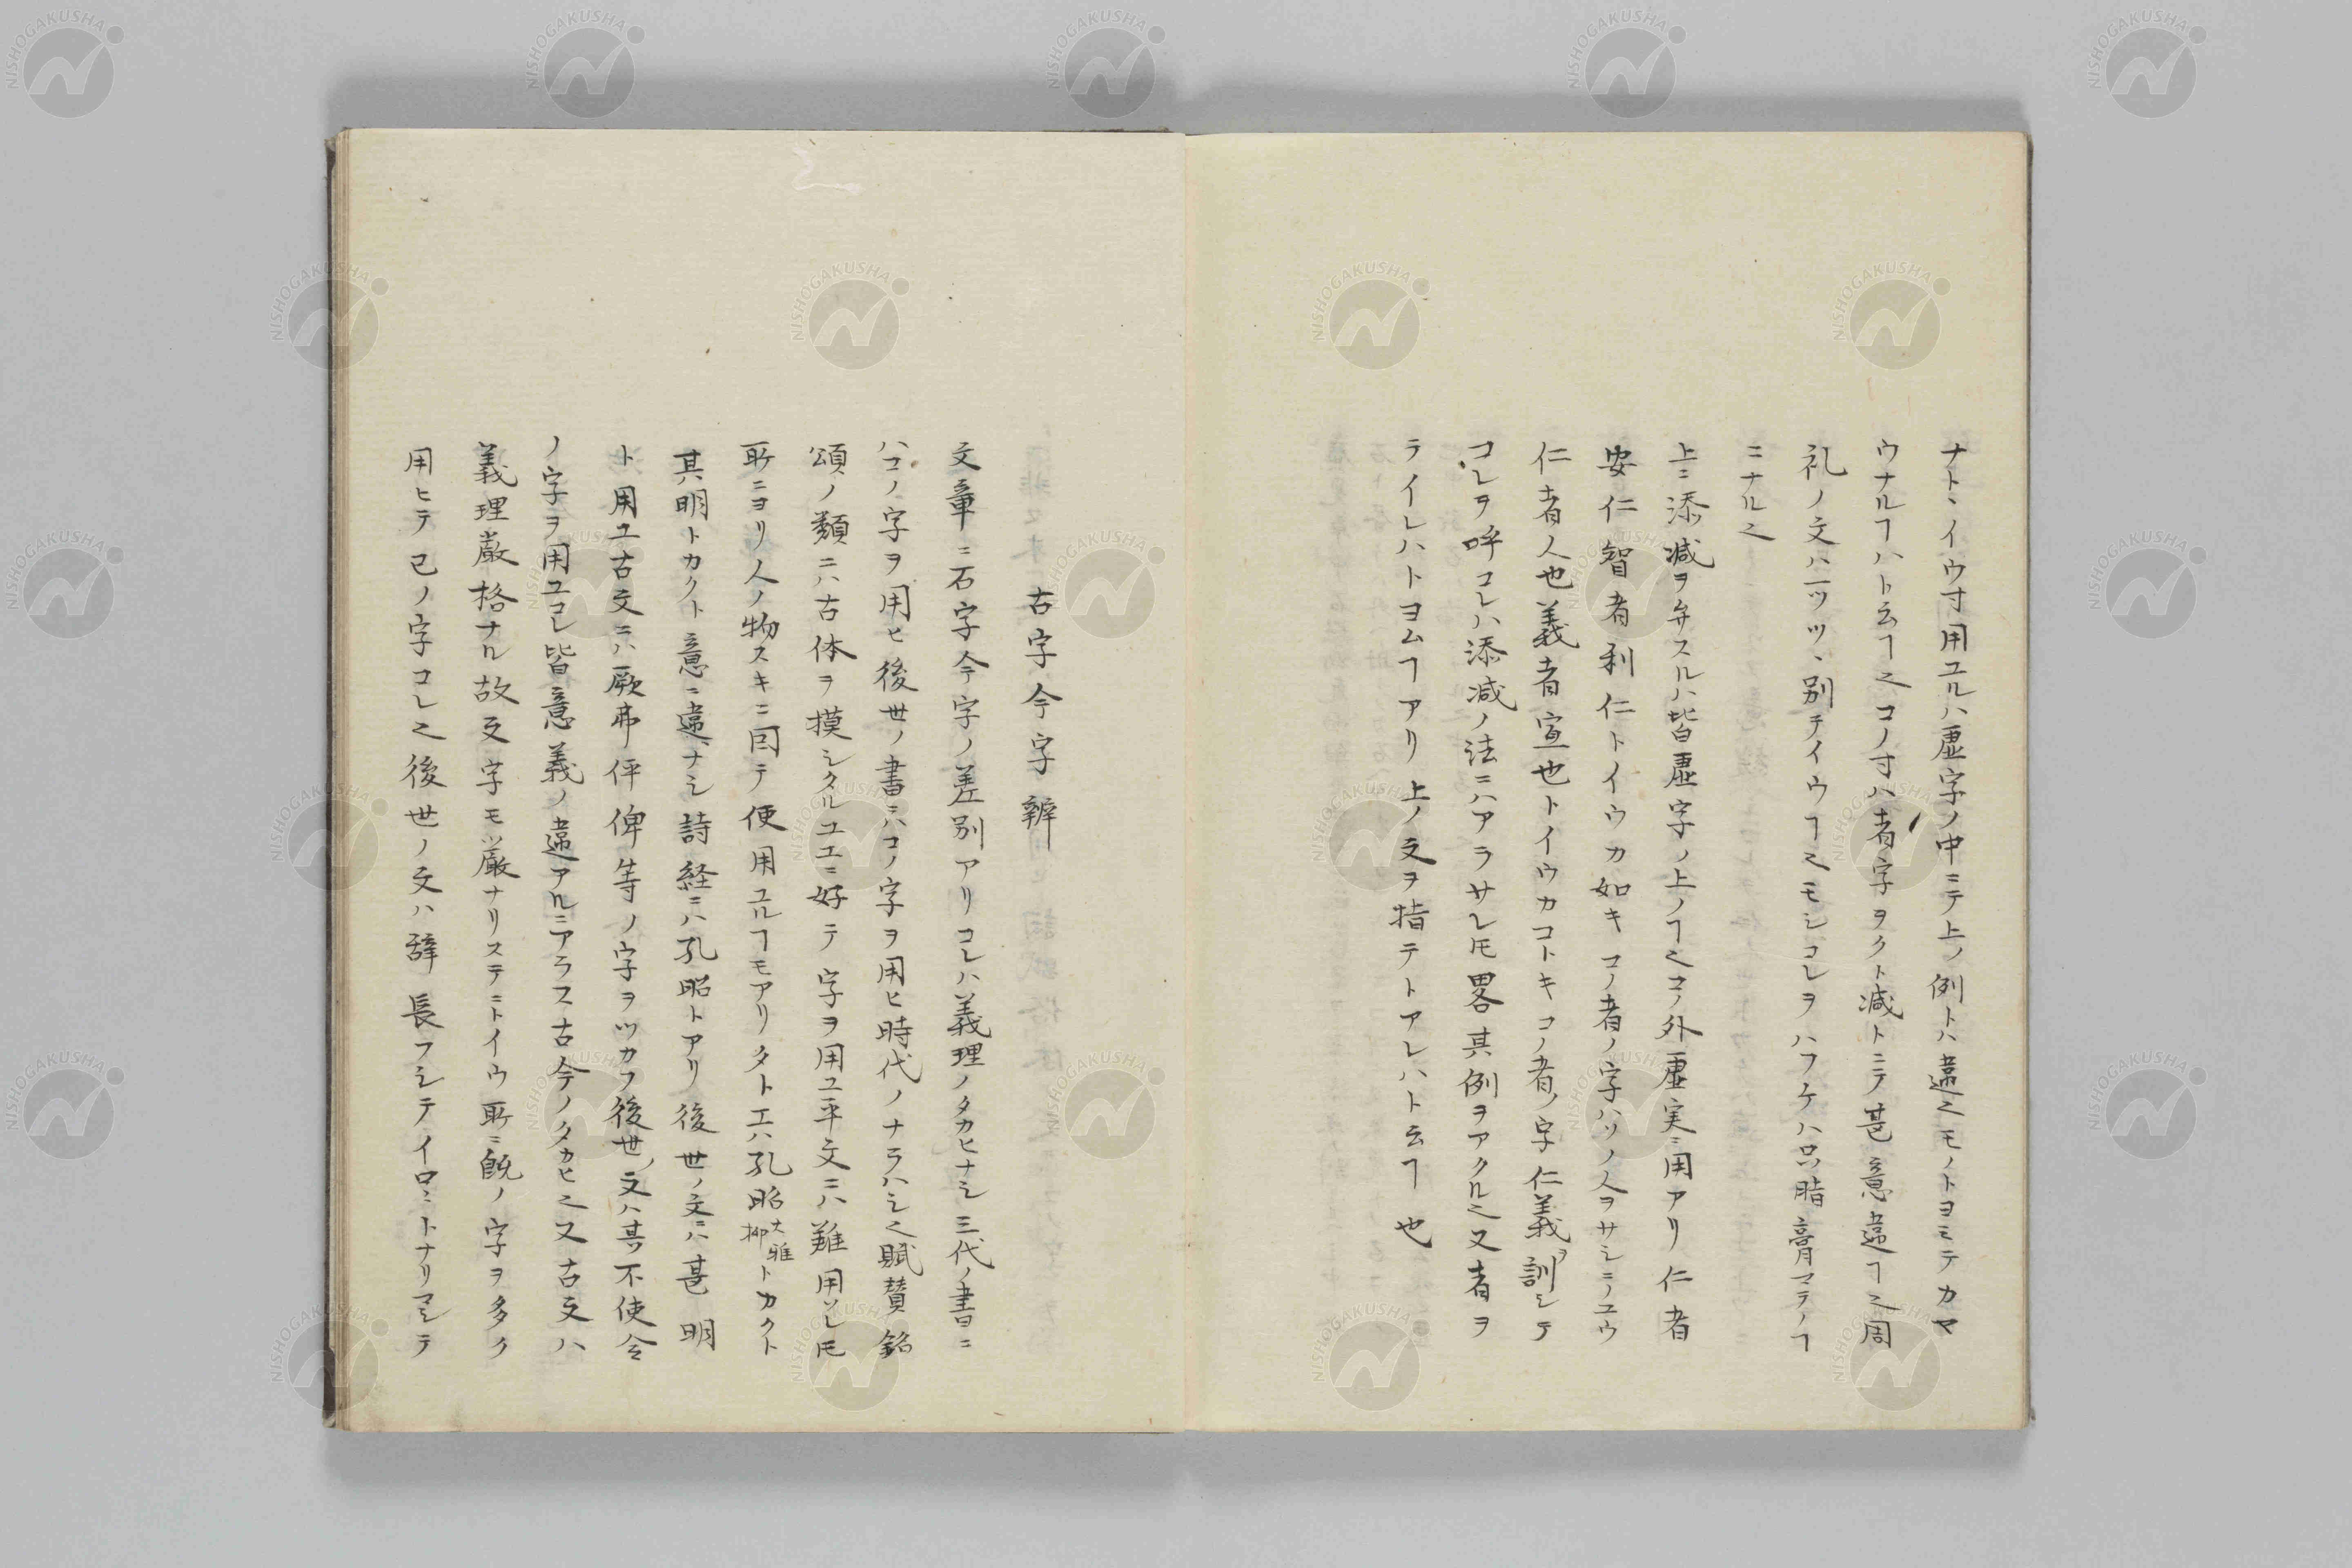 ナトヽイウ寸用ユルハ虚字ノ中ニテ上ノ例トハ違之モノトヨミテカヤ
ウナルヿハト云ヿ之コノ寸ハ者字ヲクト減トニテ甚意違ヿ之周
礼ノ文ハ一ツツヽ別テイウヿ之モシコレヲハフケハ只腊膏マテノヿ
ニナル之
上ニ添減ヲ弁スルハ皆虚字ノ上ノヿ之コノ外虚実ニ用アリ仁者
安仁智者利仁トイウカ如キコノ者ノ字ハソノ人ヲサシニノユウ
仁者人也義者宜也トイウカコトキコノ者ノ字仁義ヲ訓シテ
コレヲ呼コレハ添減ノ法ニハアラサレ𪜈畧其例ヲアクル之又者ヲ
テイレハトヨムヿアリ上ノ文ヲ指テトアレハト云ヿ也
古字今字辨
文章ニ石字今字ノ差別アリコレハ義理ノタカヒナシ三代ノ書ニ
ハコノ字ヲ用ヒ後世ノ書ニハコノ字ヲ用ヒ時代ノナラハシ之賦賛銘
頌ノ類ニハ古体ヲ摸シタルユエニ好テ字ヲ用ユ平文ニハ難用シレ𪜈
所ニヨリ人ノ物スキニ因テ便用ユルヿモアリタトエハ孔昭大雅抑トカクト
其明トカクト意ニ違ナシ詩経ニハ孔昭トアリ後世ノ文ニハ甚明
ト用ユ古文ニハ厥弗伻俾等ノ字ヲツカフ後世ノ文ハ其不使令
ノ字ヲ用ユコレ皆意義ノ違アルニアラス古今ノタカヒ之又古文ハ
義理厳格ナル故文字モ厳ナリステニトイウ所ニ既ノ字ヲ多ク
用ヒテ已ノ字コレ之後世ノ文ハ辞長フシテイロミトナリマシテ